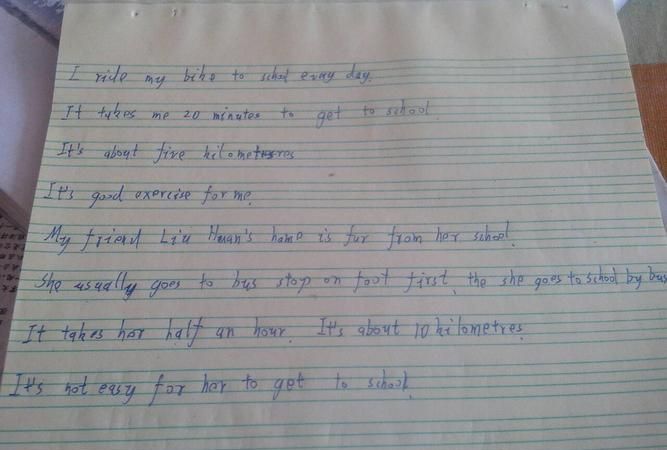 I ride my bike to school evay day.
It takes me 20 minutes to get to school.
It's about five kilometres
It's good exercise for me.
My friend Liu Huan's home is far from her school.
She usually goes to bus stop on foot first, the she goes to school by bus
It takes her half an hour. It's about 10 kilometres.
It's not easy for her to get to school.